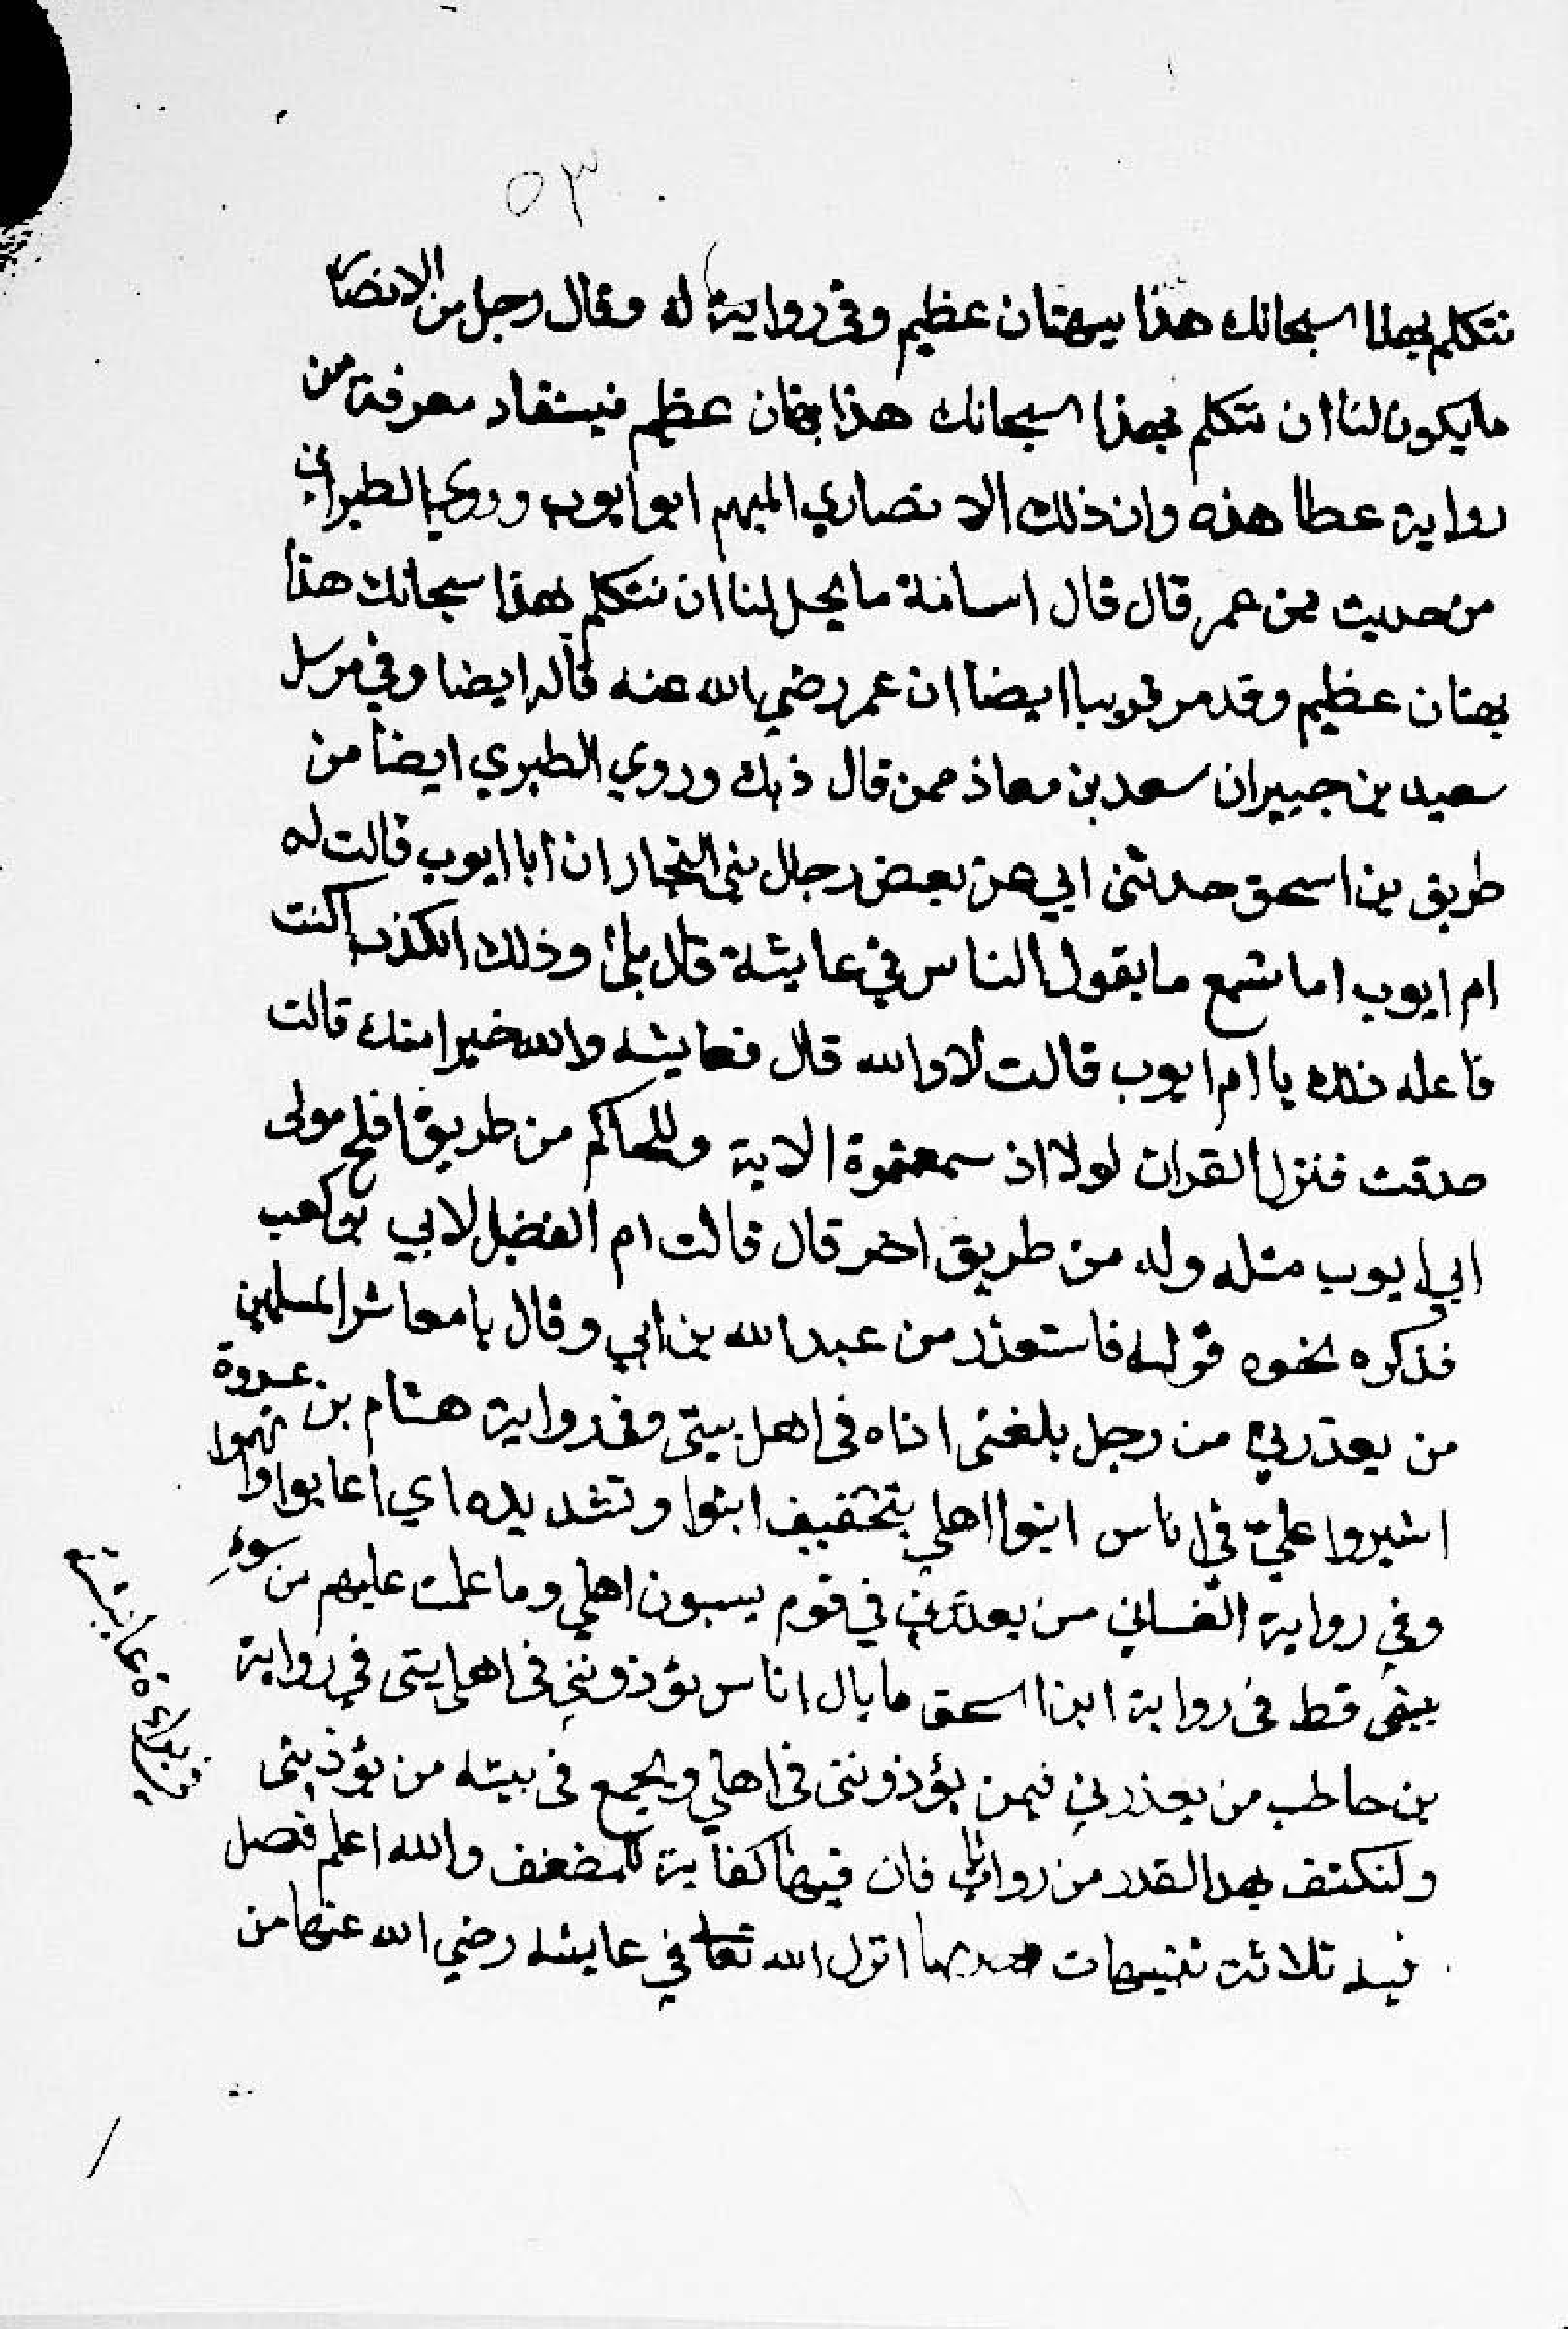 ٥٣
نتكلم بهذا سبحانك هذا بهتان عظيم وفي رواية له وقال رجل من الانصار
ما يكون لنا ان نتكلم بهذا سبحانك هذا بهتان عظيم فيستفاد معرفته من
رواية عطا هذه وان ذلك الانصاري المبهم ابو ايوب وروي الطبراني
من حديث بن عمر قال قال اسامة ما يحل لنا ان نتكلم بهذا سبحانك هذا
بهتان عظيم وقد مر قريبا ايضا ان عمر رضي الله عنه قاله ايضا وفي مرسل
سعيد بن جبير ان سعد بن معاذ ممن قال ذلك وروي الطبري ايضا من
طريق بن اسحق حدثني ابي عن بعض رجال بني النجار ان ابا ايوب قالت له
ام ايوب اما تسمع ما يقول الناس في عايشة قال بلى وذلك الكذب اكنت
فاعله ذلك يا ام ايوب قالت لا والله قال فعايشه والله خير امنك قالت
صدقت فنزل القران لولا اذ سمعتموة الاية وللحاكم من طريق افلح مولى
ابي ايوب مثله وله من طريق اخر قال قالت ام الفضل لابي بن كعب
فذكره نحوه قوله فاستعذر من عبد الله بن ابي وقال يا معاشر المسلمين
من يعذرني من رجل بلغني اذاه في اهل بيتي وفي رواية هشام بن عروة
اشيروا علي في اناس ابنوا اهلي بتخفيف ابنوا وتشديده اي اعابوا واتهموا
وفي رواية الغساني من يعذرني في قوم يسبون اهلي وما علمت عليهم من سوء
بيتي قط في رواية ابن اسحق ما بال اناس يؤذونني في اهلي بيتي في رواية
بن حاطب من يعذرني فيمن يؤذونني في اهلي ويجمع في بيته من يؤذيني
ولنكتف بهذا القدر من رواياتها فان فيها كفاية للمضعف والله اعلم فصل
فيه ثلاثة تنبيهات احدها انزل الله تعالى في عايشه رضي الله عنها من
براءة عايشة